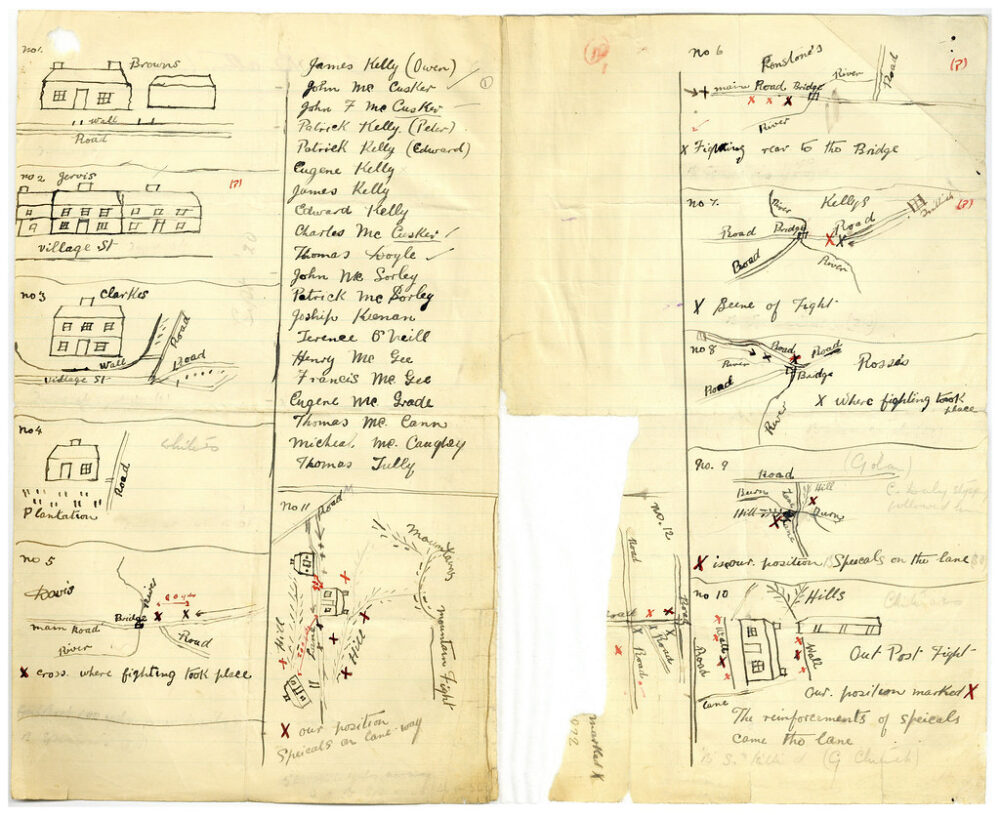 no 1.
Browns
Wall
Road
no 2 Jervis
(?)
village St
no 3 Clarkes
Wall
Road
Road
village St
no 4
Road
Plantation
no 5
Davis
River
Bridge
main Road
River
Road
X cross. where fighting took place
James Kelly (Owen)
John Mc Cusker
John F Mc Cusker
Patrick Kelly (Peter)
Patrick Kelly (Edward)
Eugene Kelly
James Kelly
Edward Kelly
Charles Mc Cusker
Thomas Doyle
John Mc Sorley
Patrick Mc Sorley
Joship Keenan
Terence O'Neill
Henry Mc Gee
Francis Mc Gee
Eugene Mc Grade
Thomas Mc Cann
Micheal Mc Caughey
Thomas Tully
①
no 11
Road
mountains
Hill
Hill
mountain Fight
X our position
Speicals on lane-way
no 6
Ronstone's
(?)
main Road Bridge
River
Road
River
X Fighting rear to the Bridge
no 7.
Kellys
(?)
River
Road
Bridge
Road
Road
River
X Scene of Fight
no 8
Road
Road
River
Road
Bridge
River
Rosses
X where fighting took
place
no. 9
(Golan)
Road
Burn
Hill
Hill
Lane
Burn
X is our. position Speicals on the lane
no 10
Hills
Wall
Road
Wall
Lane
Out Post Fight
Our. position marked X
The reinforcements of speicals
came the lane
no. 12
Road
Road
Road
Road
Road
marked X